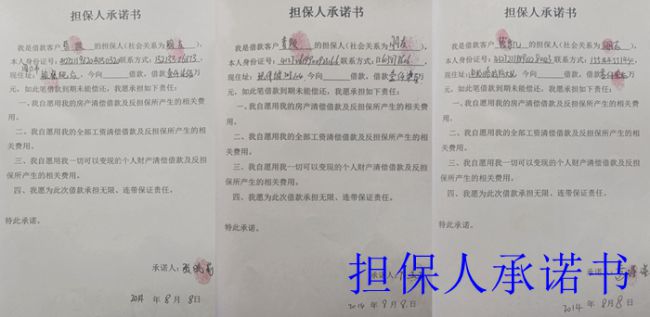 担保人承诺书
我是借款客户 的担保人(社会关系为朋友),
本人身份证号: 联系方式:
现住址: 今向 借款,借款 万
元,如此笔借款到期未能偿还,我愿承担如下责任:
一、我自愿用我的房产清偿借款及反担保所产生的相关费
用。
二、我自愿用我的全部工资清偿借款及反担保所产生的相
关费用。
三、我自愿用我一切可以变现的个人财产清偿借款及反担
保所产生的相关费用。
四、我愿为此次借款承担无限、连带保证责任。
特此承诺。
承诺人:
2014 年 8 月 8 日
担保人承诺书
我是借款客户 的担保人(社会关系为朋友),
本人身份证号: 联系方式:
现住址: 今向 借款,借款 万
元,如此笔借款到期未能偿还,我愿承担如下责任:
一、我自愿用我的房产清偿借款及反担保所产生的相关费
用。
二、我自愿用我的全部工资清偿借款及反担保所产生的相
关费用。
三、我自愿用我一切可以变现的个人财产清偿借款及反担
保所产生的相关费用。
四、我愿为此次借款承担无限、连带保证责任。
特此承诺。
承诺人:
2014 年 8 月 8 日
担保人承诺书
我是借款客户 的担保人(社会关系为朋友),
本人身份证号: 联系方式:
现住址: 今向 借款,借款 万
元,如此笔借款到期未能偿还,我愿承担如下责任:
一、我自愿用我的房产清偿借款及反担保所产生的相关费
用。
二、我自愿用我的全部工资清偿借款及反担保所产生的相
关费用。
三、我自愿用我一切可以变现的个人财产清偿借款及反担
保所产生的相关费用。
四、我愿为此次借款承担无限、连带保证责任。
特此承诺。
2014 年 8 月 8 日
担保人承诺书